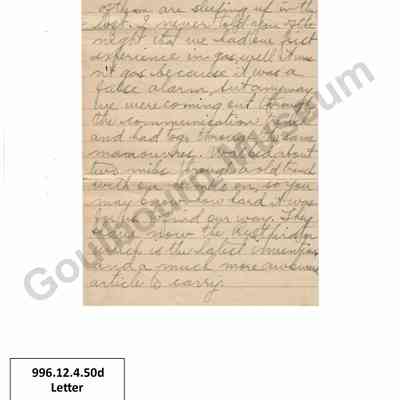 of them are sleeping up in the
loft. I never told you of the
night that we had our first
experience in gas, well it was
n't gas because it was a
false alarm, but anyway
we were coming out through
the communication trench
and had to go through
manouvres. Walked about
two miles through a old trench
with our masks on, so you
may know how hard it was
for us to find our way. They
now the
which is the latest invention
and a much more awkward
article to carry.
Goulbourn Museum
996.12.4.50d
Letter